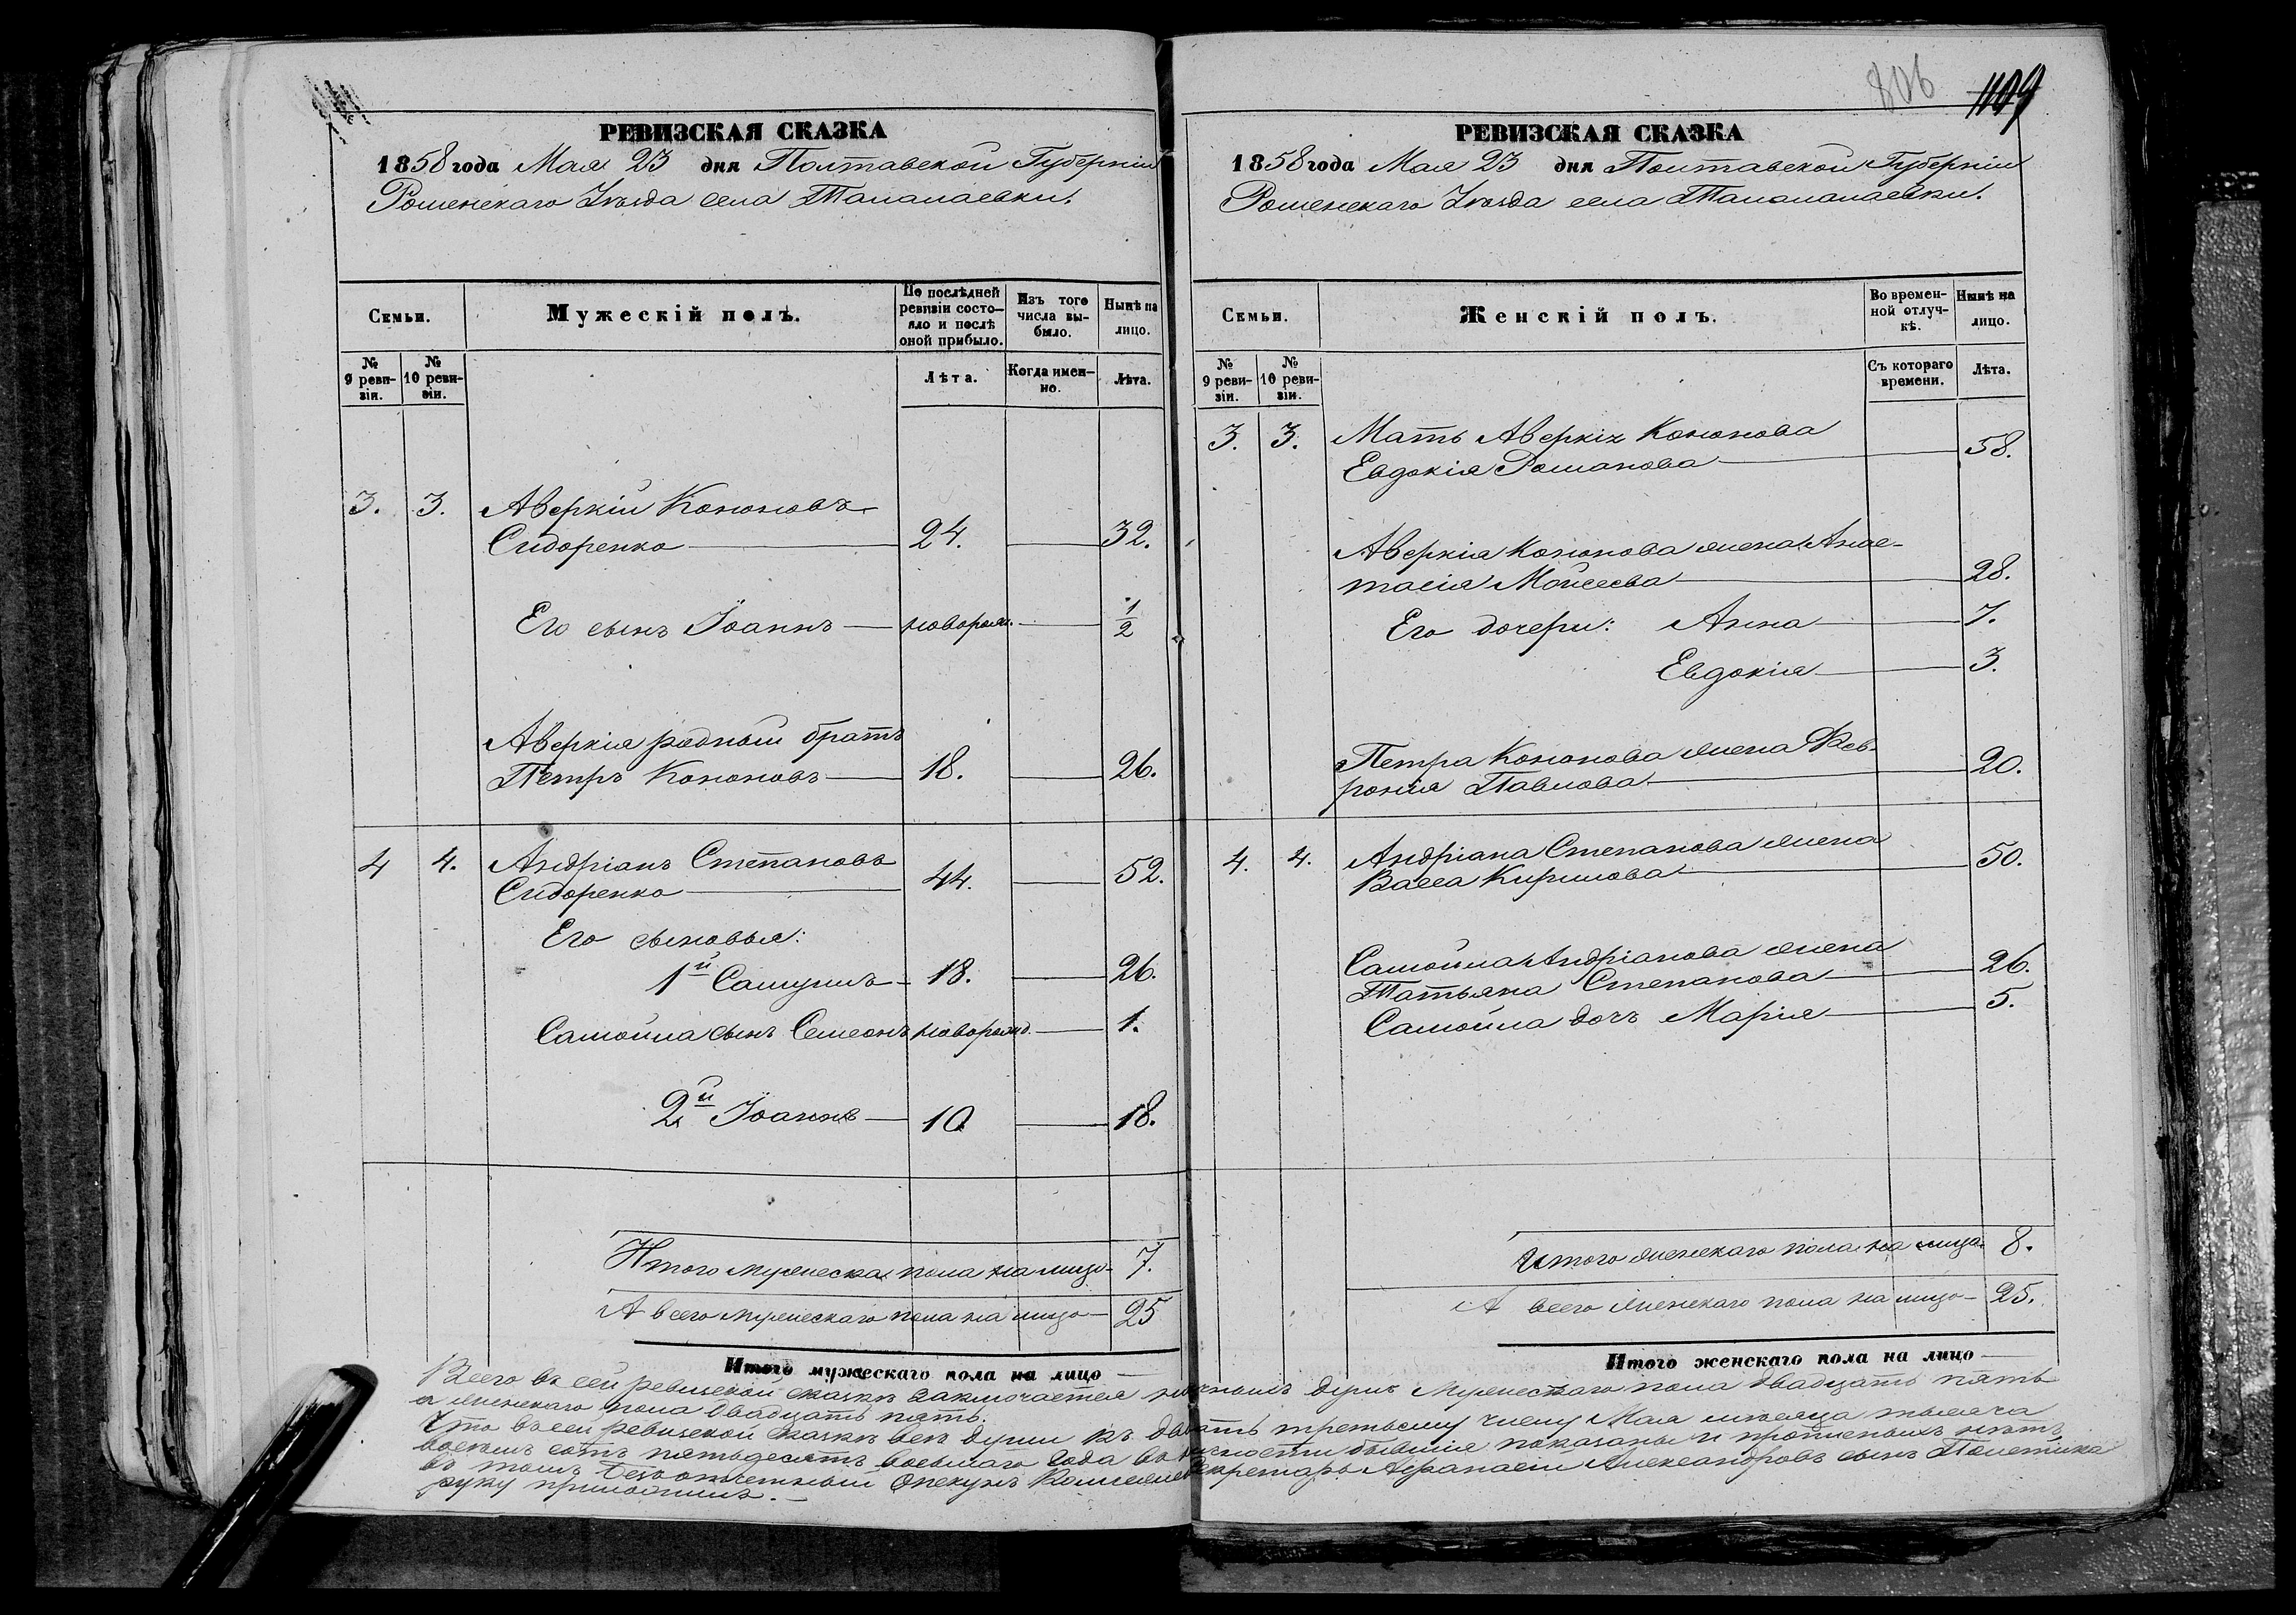 РЕВИЗСКАЯ СКАЗКА
1858 года Мая 23 дня Полтавской Губерніи
Роменскаго Уѣзда села Талалаевки.
Семьи.
Мужескій полъ.
По послѣдней ревизіи состояло и послѣ оной прибыло.
Изъ того числа выбыло.
Нынѣ на лицо.
№ 9 ревизіи.
№ 10 ревизіи.
Лѣта.
Когда именно.
Лѣта.
3. 3. Аверкій Кононовъ
Сидоренко 24. 32.
Его сынъ Іоаннъ новорож. 1/2
Аверкія родный братъ
Петръ Кононовъ 18. 26.
4 4. Андріанъ Степановъ
Сидоренко 44. 52.
Его сыновья:
1й Самуилъ 18. 26.
Самойла сынъ Семеонъ новорожд. 1.
2й Іоаннъ 10 18.
Итого мужеска пола на лицо 7.
А всего мужескаго пола на лицо 25
Итого мужескаго пола на лицо
806 1109
РЕВИЗСКАЯ СКАЗКА
1858 года Мая 23 дня Полтавской Губерніи
Роменскаго Уѣзда села Талалаевки.
Семьи.
Женскій полъ.
Во временной отлучкѣ.
Нынѣ на лицо.
№ 9 ревизіи.
№ 10 ревизіи.
Съ котораго времени.
Лѣта.
3. 3. Мать Аверкія Кононова
Евдокія Романова 58.
Аверкія Кононова жена Анас-
тасія Мойсеева 28.
Его дочери: Анна 7.
Евдокія 3.
Петра Кононова жена Фев-
ронія Павлова 20.
4. 4. Андріана Степанова жена
Васса Кирилова 50.
Самойла Андріанова жена
Татьяна Степанова 26.
Самойла дочь Марія 5.
Итого женскаго пола на лицо 8.
А всего женскаго пола на лицо 25.
Итого женскаго пола на лицо
Всего въ сей ревизской сказкѣ заключается наличныхъ душъ Мужескаго пола двадцать пять
а женскаго пола двадцать пять.
Что въ сей ревизской сказкѣ всѣ души къ двадцать третьему числу Мая мѣсяца тысяча
восемьсотъ пятьдесятъ восьмаго года въ наличности бывшія показаны и прописныхъ нѣтъ
въ томъ Опекунъ Секретарь Афанасій Александровъ сынъ Полетика
руку приложилъ.